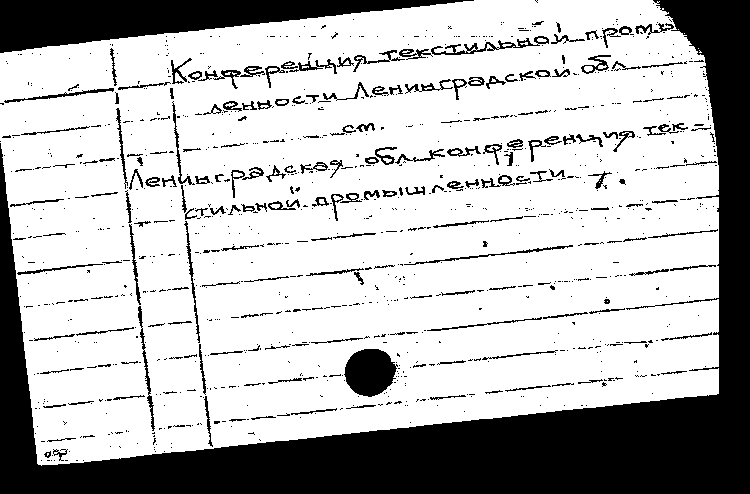 Конференция текстильной промыш
ленности Ленинградской обл
ст.
Ленинградская обл. конференция тек-
стильной промышленности